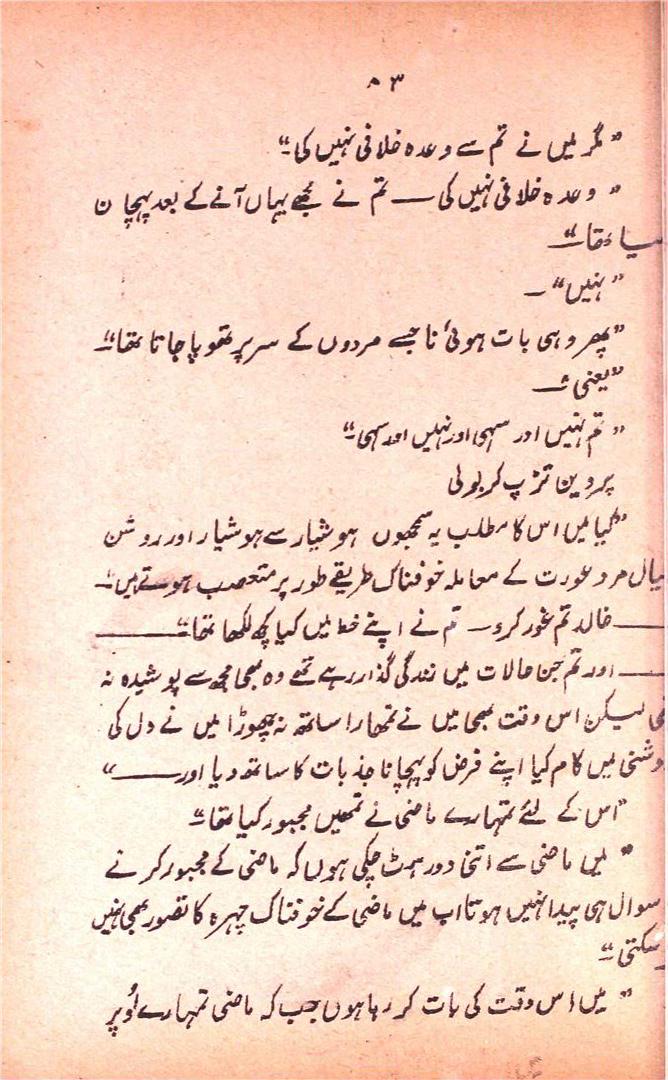 ۸۳
”مگر میں نے تم سے وعدہ خلافی نہیں کی“
”وعدہ خلافی نہیں کی — تم نے مجھے یہاں آنے کے بعد پہچان
لیا تھا“
”نہیں“ —
”پھر وہی بات ہوئی نا جسے مردوں کے سر پر تھوپا جاتا تھا“
”یعنی“ —
”تم نہیں اور سہی اور نہیں اور سہی“
پروین تڑپ کر بولی
”کیا میں اس کا مطلب یہ سمجھوں ہوشیار سے ہوشیار اور روشن
خیال مرد عورت کے معاملہ خوفناک طریقے طور پر متعصب ہوتے ہیں“
— خالد تم غور کرو — تم نے اپنے خط میں کیا کچھ لکھا تھا —
— اور تم جن حالات میں زندگی گذار رہے تھے وہ بھی مجھ سے پوشیدہ نہ
تھی لیکن اس وقت بھی میں نے تمھارا ساتھ نہ چھوڑا میں نے دل کی
روشنی میں کام کیا اپنے فرض کو پہچانا جذبات کا ساتھ دیا اور —“
”اس کے لئے تمہارے ماضی نے تمھیں مجبور کیا تھا“
”میں ماضی سے اتنی دور ہٹ چکی ہوں کہ ماضی کے مجبور کرنے
سوال ہی پیدا نہیں ہوتا اب میں ماضی کے خوفناک چہرہ کا تصور بھی نہیں
کر سکتی“
”میں اس وقت کی بات کر رہا ہوں جب کہ ماضی تمہارے اُوپر